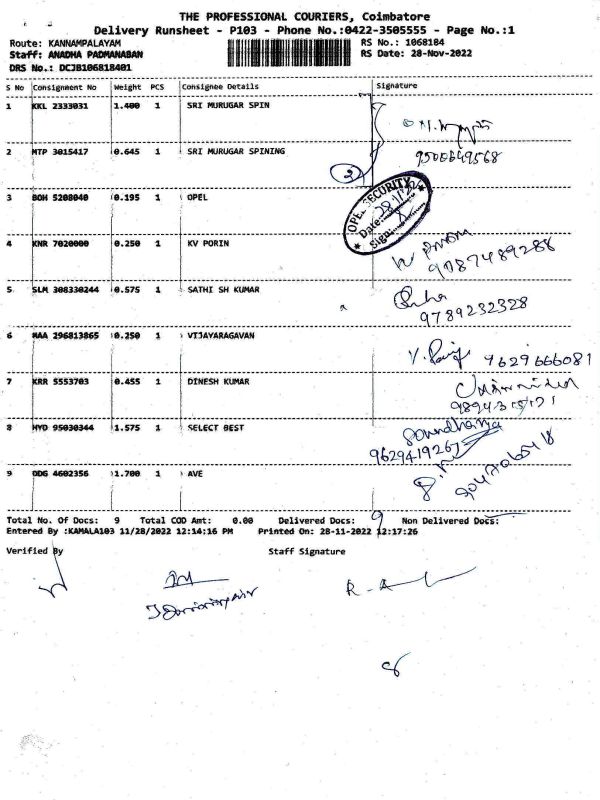 THE PROFESSIONAL COURIERS, Coimbatore
Delivery Runsheet - P103 - Phone No.:0422-3505555 - Page No.:1
Route: KANNAMPALAYAM RS No.: 1068184
Staff: ANADHA PADMANABAN RS Date: 28-Nov-2022
DRS No.: DCJB106818401
S No Consignment No Weight PCS Consignee Details Signature
1 KKL 2333031 1.400 1 SRI MURUGAR SPIN
2 MTP 3015417 0.645 1 SRI MURUGAR SPINING 9500649568
2
3 BOH 5208040 0.195 1 OPEL
OPEL SECURITY
Date:
Sign:
4 KNR 7020000 0.250 1 KV PORIN
9087489288
5 SLM 308330244 0.575 1 SATHI SH KUMAR
9789232328
6 MAA 296813865 0.250 1 VIJAYARAGAVAN
9629666081
7 KRR 5553703 0.455 1 DINESH KUMAR
8 HYD 95030344 1.575 1 SELECT BEST Soundharya
9629419267
9 ODG 4602356 1.700 1 AVE
Total No. Of Docs: 9 Total COD Amt: 0.00 Delivered Docs: 9 Non Delivered Docs:
Entered By :KAMALA103 11/28/2022 12:14:16 PM Printed On: 28-11-2022 12:17:26
Verified By Staff Signature